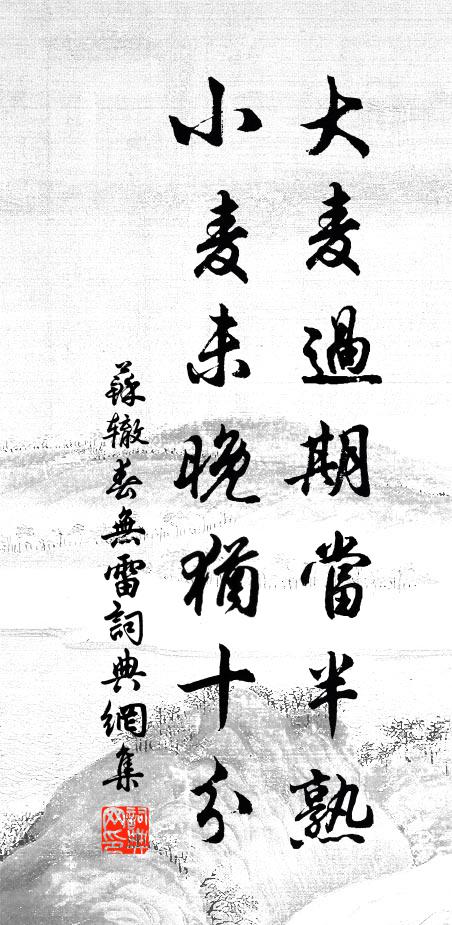 大麦過期當半熟
小麦未晚猶十分
蘇辙春無雷詞典網集